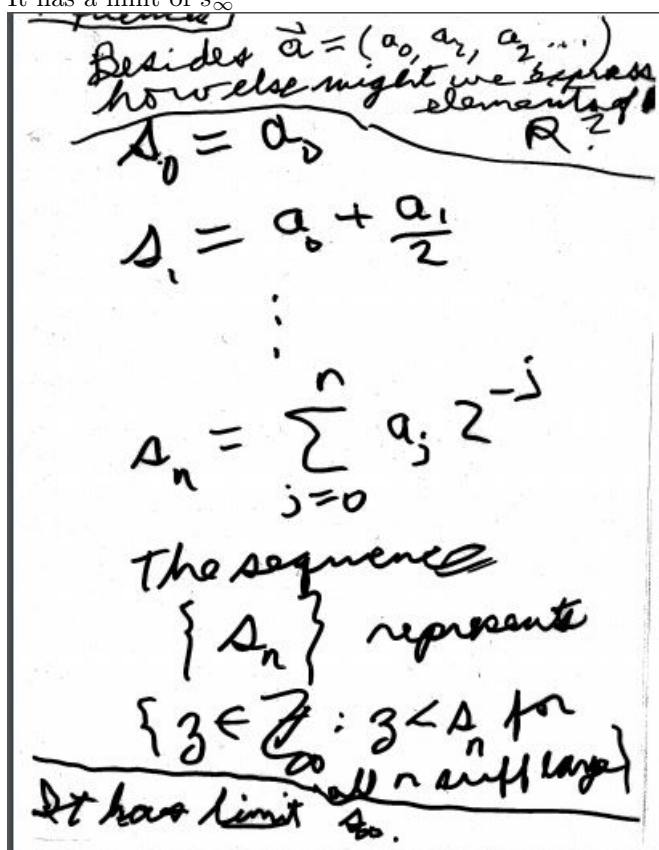 It has a limit of s∞
Besides a⃗ = (a₀, a₁, a₂ ...)
how else might we express
elements of
R?
s₀ = a₀
s₁ = a₀ + a₁/2
⋮
sₙ = ∑ⱼ₌₀ⁿ aⱼ 2⁻ʲ
The sequence
{ sₙ } represents
{ z ∈ ℤ∞ : z < sₙ for
all n suff large }
It has limit s∞.